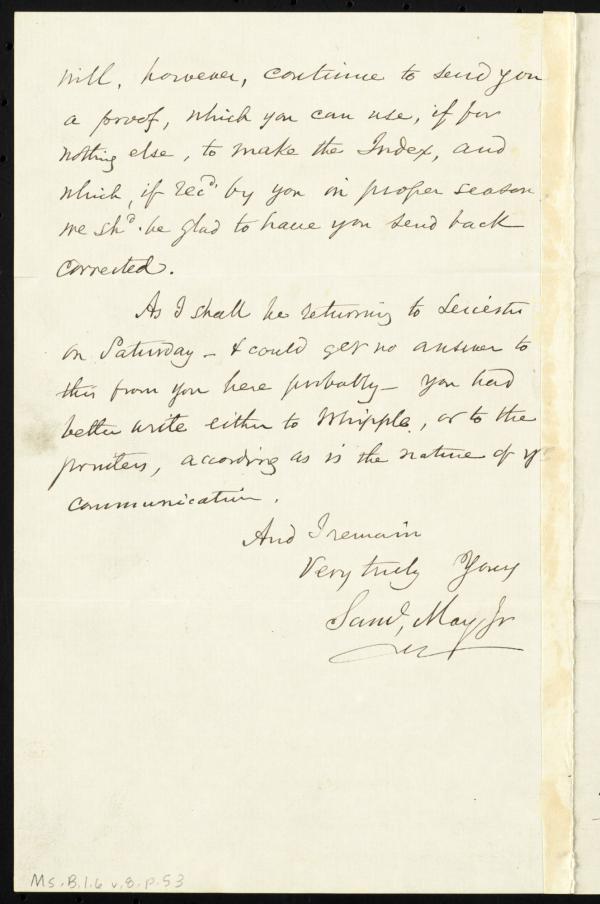 will, however, continue to send you
a proof, which you can use, if for
nothing else, to make the Index, and
which, if rec'd. by you in proper season
we sh'd. be glad to have you send back
corrected.
As I shall be returning to Leicester
on Saturday - & could get no answer to
this from you here probably - you had
better write either to Whipple, or to the
printers, according as is the nature of yr
communication.
And I remain
Very truly Yours
Saml. May, Jr
Ms. B.1.6 v.8. p.53